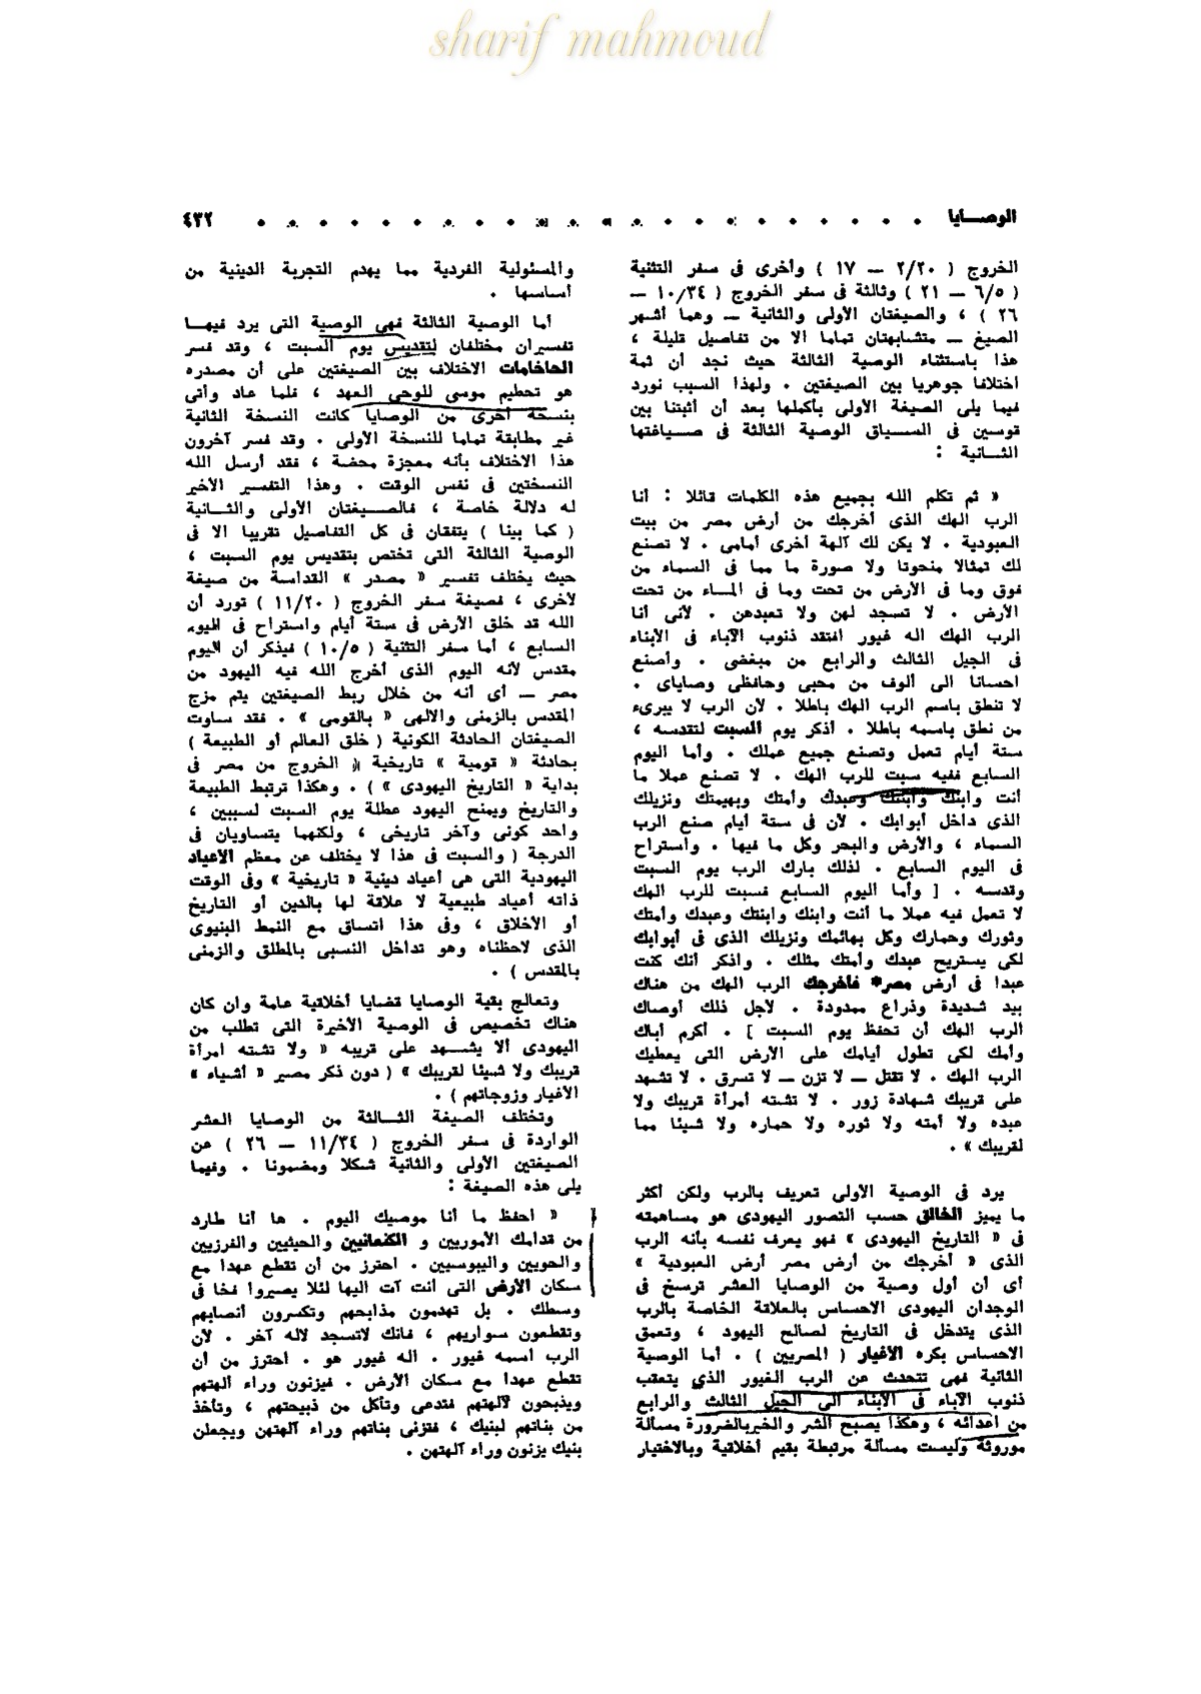 sharif mahmoud
الوصــايا
٤٣٢
الخروج ( ٢/٢٠ — ١٧ ) وأخرى فى سفر التثنية
( ٦/٥ — ٢١ ) وثالثة فى سفر الخروج ( ١٠/٣٤ —
٢٦ ) ، والصيغتان الأولى والثانية — وهما أشهر
الصيغ — متشابهتان تماما الا من تفاصيل قليلة ،
هذا باستثناء الوصية الثالثة حيث نجد أن ثمة
اختلافا جوهريا بين الصيغتين . ولهذا السبب نورد
فيما يلى الصيغة الأولى بأكملها بعد أن أثبتنا بين
قوسين فى الســياق الوصية الثالثة فى صــياغتها
الثــانية :
« ثم تكلم الله بجميع هذه الكلمات قائلا : أنا
الرب الهك الذى أخرجك من أرض مصر من بيت
العبودية . لا يكن لك آلهة أخرى أمامى . لا تصنع
لك تمثالا منحوتا ولا صورة ما مما فى السماء من
فوق وما فى الأرض من تحت وما فى المــاء من تحت
الأرض . لا تسجد لهن ولا تعبدهن . لأنى أنا
الرب الهك اله غيور افتقد ذنوب الآباء فى الأبناء
فى الجيل الثالث والرابع من مبغضى . وأصنع
احسانا الى ألوف من محبى وحافظى وصاياى .
لا تنطق باسم الرب الهك باطلا . لأن الرب لا يبرىء
من نطق باسمه باطلا . أذكر يوم السبت لتقدسه ،
ستة أيام تعمل وتصنع جميع عملك . وأما اليوم
السابع ففيه سبت للرب الهك . لا تصنع عملا ما
أنت وابنك وابنتك وعبدك وأمتك وبهيمتك ونزيلك
الذى داخل أبوابك . لأن فى ستة أيام صنع الرب
السماء ، والأرض والبحر وكل ما فيها . وأستراح
فى اليوم السابع . لذلك بارك الرب يوم السبت
وقدسه . [ وأما اليوم السابع فسبت للرب الهك
لا تعمل فيه عملا ما أنت وابنك وابنتك وعبدك وأمتك
وثورك وحمارك وكل بهائمك ونزيلك الذى فى أبوابك
لكى يستريح عبدك وأمتك مثلك . واذكر أنك كنت
عبدا فى أرض مصر* فأخرجك الرب الهك من هناك
بيد شديدة وذراع ممدودة . لاجل ذلك أوصاك
الرب الهك أن تحفظ يوم السبت ] . أكرم أباك
وأمك لكى تطول أيامك على الأرض التى يعطيك
الرب الهك . لا تقتل — لا تزن — لا تسرق . لا تشهد
على قريبك شهادة زور . لا تشته أمرأة قريبك ولا
عبده ولا أمته ولا ثوره ولا حماره ولا شيئا مما
لقريبك » .
يرد فى الوصية الأولى تعريف بالرب ولكن أكثر
ما يميز الخالق حسب التصور اليهودى هو مساهمته
فى « التاريخ اليهودى » فهو يعرف نفسه بأنه الرب
الذى « أخرجك من أرض مصر أرض العبودية »
أى أن أول وصية من الوصايا العشر ترسخ فى
الوجدان اليهودى الاحساس بالعلاقة الخاصة بالرب
الذى يتدخل فى التاريخ لصالح اليهود ، وتعمق
الاحساس بكره الأغيار ( المصريين ) . أما الوصية
الثانية فهى تتحدث عن الرب الغيور الذي يتعقب
ذنوب الآباء فى الأبناء الى الجيل الثالث والرابع
من أعدائه ، وهكذا يصبح الشر والخيربالضرورة مسألة
موروثة وليست مسألة مرتبطة بقيم أخلاقية وبالاختيار
والمسئولية الفردية مما يهدم التجربة الدينية من
أساسها .
أما الوصية الثالثة فهى الوصية التى يرد فيهــا
تفسيران مختلفان لتقديس يوم السبت ، وقد فسر
الحاخامات الاختلاف بين الصيغتين على أن مصدره
هو تحطيم موسى للوحى العهد ، فلما عاد وأتى
بنسخة أخرى من الوصايا كانت النسخة الثانية
غير مطابقة تماما للنسخة الأولى . وقد فسر آخرون
هذا الاختلاف بأنه معجزة محضة ، فقد أرسل الله
النسختين فى نفس الوقت . وهذا التفسير الأخير
له دلالة خاصة ، فالصــيغتان الأولى والثــانية
( كما بينا ) يتفقان فى كل التفاصيل تقريبا الا فى
الوصية الثالثة التى تختص بتقديس يوم السبت ،
حيث يختلف تفسير « مصدر » القداسة من صيغة
لأخرى ، فصيغة سفر الخروج ( ١١/٢٠ ) تورد أن
الله قد خلق الأرض فى ستة أيام واستراح فى اليوم
السابع ، أما سفر التثنية ( ١٠/٥ ) فيذكر أن اليوم
مقدس لأنه اليوم الذى أخرج الله فيه اليهود من
مصر — أى أنه من خلال ربط الصيغتين يتم مزج
المقدس بالزمنى والالهى « بالقومى » . فقد ساوت
الصيغتان الحادثة الكونية ( خلق العالم أو الطبيعة )
بحادثة « قومية » تاريخية ( الخروج من مصر فى
بداية « التاريخ اليهودى » ) . وهكذا ترتبط الطبيعة
والتاريخ ويمنح اليهود عطلة يوم السبت لسببين ،
واحد كونى وآخر تاريخى ، ولكنهما يتساويان فى
الدرجة ( والسبت فى هذا لا يختلف عن معظم الأعياد
اليهودية التى هى أعياد دينية « تاريخية » وفى الوقت
ذاته أعياد طبيعية لا علاقة لها بالدين أو التاريخ
أو الأخلاق ، وفى هذا اتساق مع النمط البنيوى
الذى لاحظناه وهو تداخل النسبى بالمطلق والزمنى
بالمقدس ) .
وتعالج بقية الوصايا قضايا أخلاقية عامة وان كان
هناك تخصيص فى الوصية الأخيرة التى تطلب من
اليهودى ألا يشــهد على قريبه « ولا تشته امرأة
قريبك ولا شيئا لقريبك » ( دون ذكر مصير « أشياء »
الأغيار وزوجاتهم ) .
وتختلف الصيغة الثــالثة من الوصايا العشر
الواردة فى سفر الخروج ( ١١/٣٤ — ٢٦ ) عن
الصيغتين الأولى والثانية شكلا ومضمونا . وفيما
يلى هذه الصيغة :
« احفظ ما أنا موصيك اليوم . ها أنا طارد
من قدامك الأموريين و الكنعانيين والحيثيين والفرزيين
والحويين واليبوسيين . احترز من أن تقطع عهدا مع
سكان الأرض التى أنت آت اليها لئلا يصيروا فخا فى
وسطك . بل تهدمون مذابحهم وتكسرون أنصابهم
وتقطعون سواريهم ، فانك لاتسجد لاله آخر . لأن
الرب اسمه غيور . اله غيور هو . احترز من أن
تقطع عهدا مع سكان الأرض . فيزنون وراء آلهتهم
ويذبحون لآلهتهم فتدعى وتأكل من ذبيحتهم ، وتأخذ
من بناتهم لبنيك ، فتزنى بناتهم وراء آلهتهن ويجعلن
بنيك يزنون وراء آلهتهن .